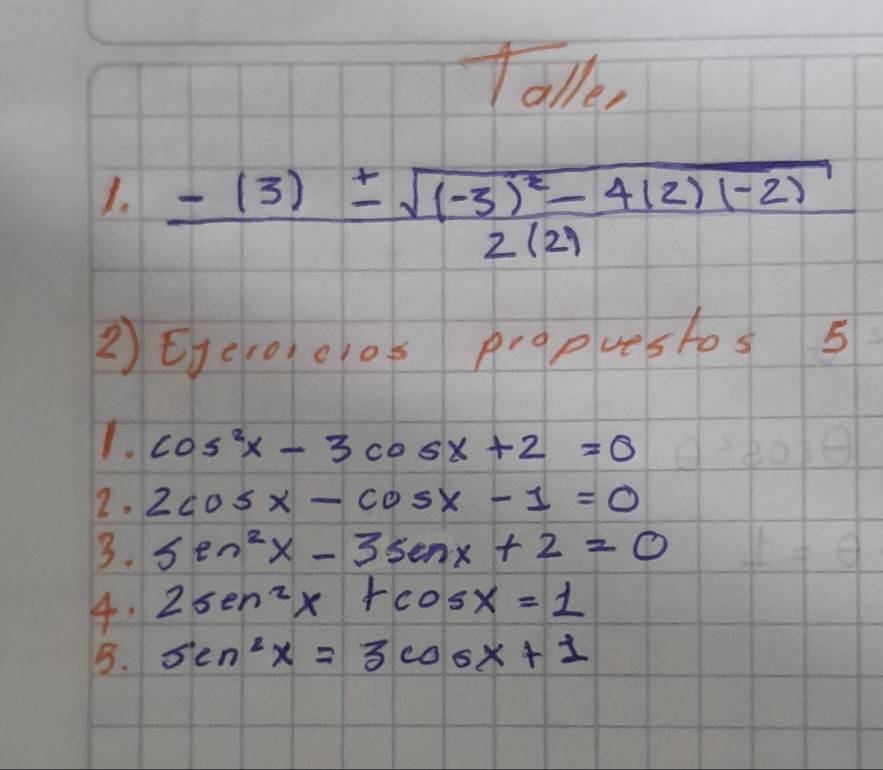 Taller
1. - (3) ± √(-3)² - 4(2)(-2)
2(2)
2) Ejercicios propuestos 5
1. cos²x - 3cosx + 2 = 0
2. 2cosx - cosx - 1 = 0
3. sen²x - 3senx + 2 = 0
4. 2sen²x + cosx = 1
5. sen²x = 3cosx + 1